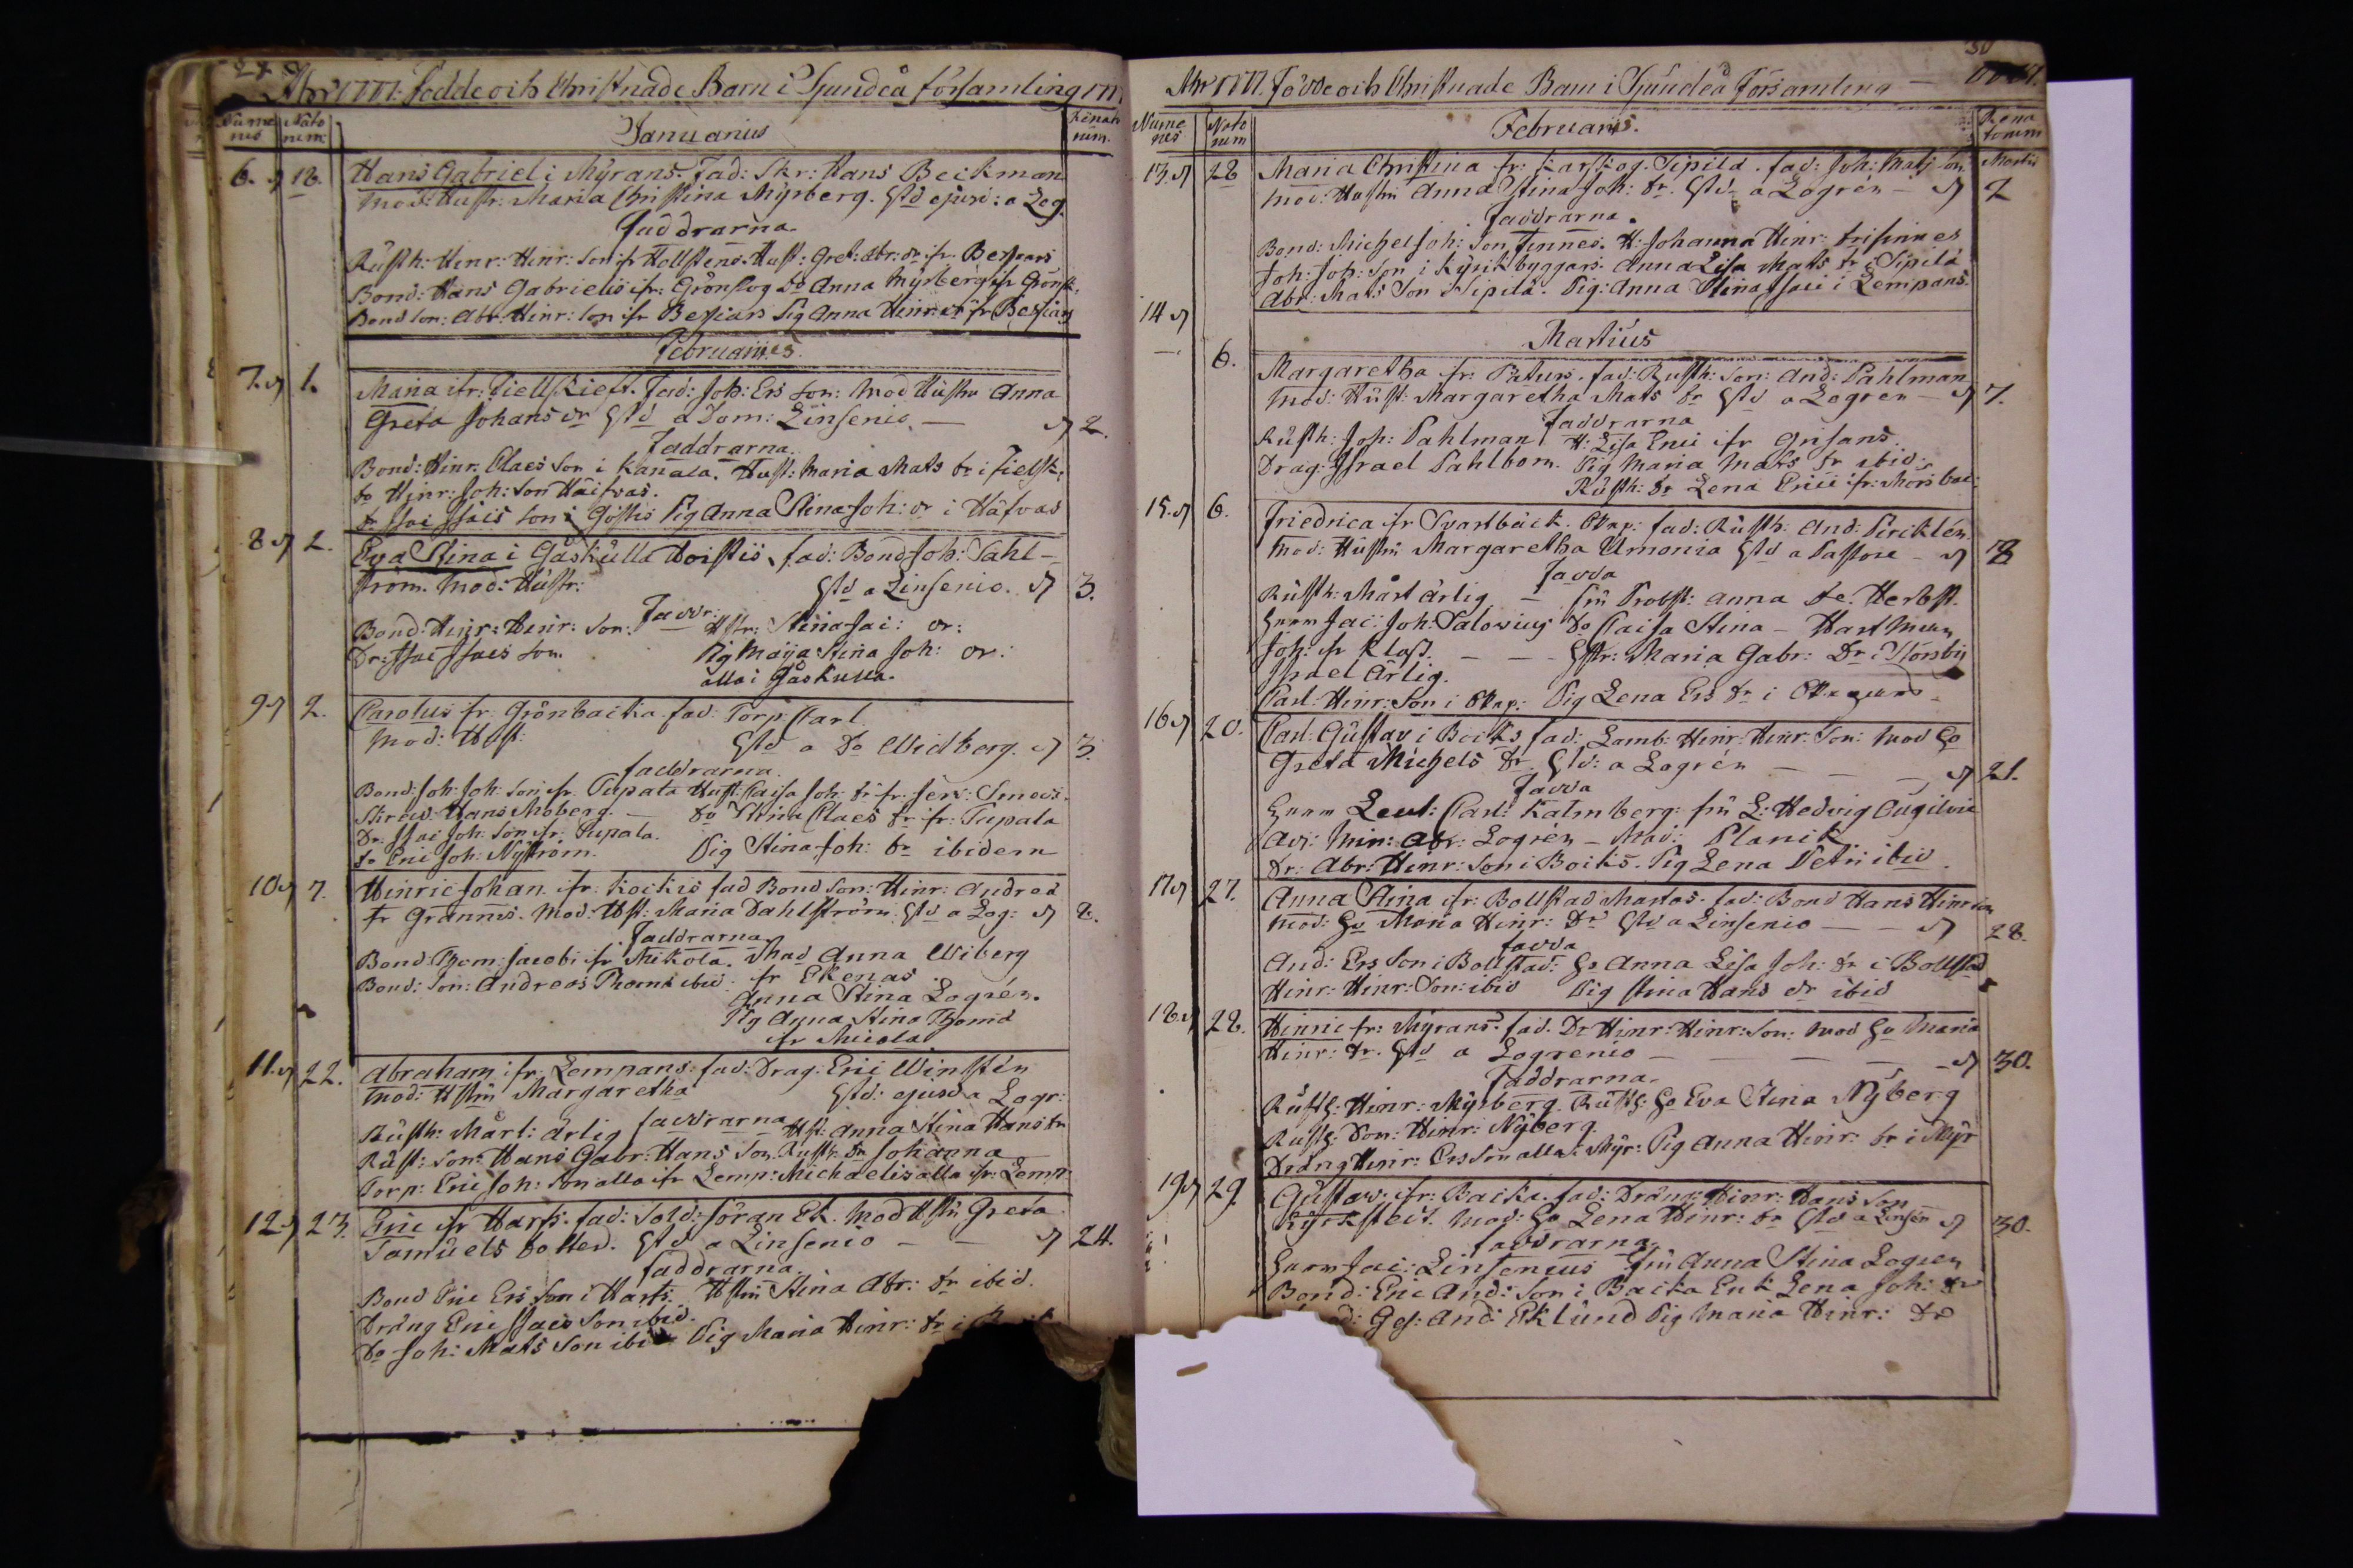 Åhr 1777. Födde och Christnade Barn i Sjundeå församling
Nume
rus
Nato
rum
Januarius
Renat
rum.
6. 18. Hans Gabriel i Myrans. Fad: Skr: Hans Beckman
Mod: Hustr: Maria Christina Myrberg. Std ejusd: a Log.
Faddrarna.
Rusth: Henr: Henr: Son fr Hollstens. Hust: Gret: Abr: dr ifr. Bessars
Bond: Hans Gabrielis ifr: Grönskog Do Anna Myrberg ifr Grönsk:
Bond son: Abr: Hinr: Son ifr Pig Anna Hinr: dr fr
Februarius.
7. 1. Maria ifr: Fiellskieft. Fad: Joh: Ers Son: Mod Hustru Anna
Greta Johans dr Std a Dom: Linsenio. — 2.
Faddrarna.
Bond: Hinr: Claes Son i Kanala. Hust: Maria Mats dr i Fielsk:
do Hinr: Joh: Son
Son i Göstis Pig Anna Stina Joh: dr i
8 2. Eva Stina i Gåskulla Fad: Bond Joh: Dahl-
ström. Mod: Hustr: Std a Linsenio. 3.
Faddr:
Bond: Hinr: Hinr: Son. Hstr: Stina dr:
Dr: Isac Isacs Son. Pig Maija Stina Joh: dr:
alla i Gåskulla.
9 2. Carolus fr. Grönbacka. Fad: Torp: Carl
Mod: Hust: Std a Do Widberg. 3.
Faddrarna.
Bond: Joh: Joh: Son fr. Pupala Hust: Caisa Joh: dr fr.
Hans Moberg. — Do Stina Claes dr fr: Pupala
Dr. Isac Joh: Son fr: Pupala.
do Eric Joh: Nyström. Pig Stina Joh: dr ibidem
10 7. Hinric Johan ifr: Kockis fad Bond Son: Hinr: Andreæ
fr Grännäs. Mod: Hst: Maria Dahlström. Std a Log: 8.
Faddrarna
Bond: Thom: Jacobi fr Mikola. Mad Anna Wiberg
Bond: Son: Andreas Thomæ ibid: fr Ekenas.
Anna Stina Logrén.
Pig Anna Stina Thomæ
ifr Micola
11. 22. Abraham ifr. Lempans: fad: Drag: Eric Winstén
Mod: Hstru Margaretha Std: ejusd a Logr:
Faddrarna
Rusth: Mårt: Ärlig Hst: Anna Stina Hans dr
Rust: Son: Hans Gabr: Hans Son. Rusth: dr Johanna
Torp: Eric Joh: Son alla ifr Lemp: Michaelis alla ifr: Lemp:
12. 23. Eric ifr Harfs. fad: Sold: Söran Ek. Mod Hstru Greta
Samuels Dotter. Std a Linsenio — — 24.
Faddrarna.
Bond Eric Ers Son i Harfs. Hstru Stina Abr: dr ibid.
Dräng Eric Isacs Son ibid.
Do Joh: Mats Son ibid Pig Maria Hinr: dr i
Åhr 1777. Födde och Christnade Barn i Sjundeå Församling —
Nume
rus
Nato
rum
Februarius.
Rena
torum
13. 28 Maria Christina fr: Karskog Sipilä. fad: Joh: Mats Son Martii
Mod: Hustru Anna Stina Joh: dr. Std a Logrén — 2
Faddrarna.
Bond: Michel Joh: Son Finnes. H: Johanna Hinr:
Joh: Joh: Son i Kyrik byggars. Anna Lisa Mats dr i Sipilä
Abr: Mats Son i Sipilä. Pig: Anna Stina i Lempans.
14
Martius
6. Margaretha fr: Paturs. fad: Rusth: Son: And: Pahlman
Mod: Hust: Margaretha Mats dr Std a Logren — 7.
Faddrarna
Rusth: Joh: Pahlman H: Lisa Erici ifr Grisans.
Drag: Israel Pahlbom. Pig Maria Mats dr ibid:
Rusth: dr Lena Erici ifr: Morsbac:
15. 6. Friedrica ifr Svartbäck. fad: Rusth: And: Pericklén
Mod: Hustru Margaretha Umonia Std a Pastore — 8
Fadda
Rusth: Mårt Ärlig — fru Probst: Anna De: Herbst.
Herrn Jac: Joh: Salovius Do Caisa Stina — Hartman
Joh: fr Kloss. — — Hstr: Maria Gabr: Dr i Störsby
Israel Ärlig.
Carl: Hinr: Son i Pig Lena Ers dr i
16 20. Carl Gustav i Böcks fad: Lamb: Hinr: Hinr: Son: Mod Ho
Greta Michels dr. Std: a Logrén — — — 21.
Fadda
Herrn Leut: Carl: Kalmberg: fru L: Hedvig
Adj: Min: Abr: Logrén — Mad: Planck
Dr: Abr: Hinr: Son i Böcks. Pig Lena Petri ibid.
17 27. Anna Stina ifr: Bollstad Martas. fad: Bond Hans Hinr Son
Mod: Ho Maria Hinr: Dr Std a Linsenio — — 28.
Fadda
And: Ers Son i Bollstad: Ho Anna Lisa Joh: dr i Bollstad
Hinr: Hinr: Son: ibid Pig Stina Hans dr ibid
18. 28. Hinric fr: Myrans. fad. Dr Hinr: Hinr: Son: Mod Ho Maria
Hinr: dr. Std a Logrenio — — — — 30.
Faddrarna.
Rusth: Hinr: Myrberg. Rusth: Ho Eva Stina Nyberg
Rusth: Son: Hinr: Nyberg.
Dräng Hinr: Ers Son alla i Myr: Pig Anna Hinr: dr i Myr
19 29. Gustav: ifr: Backa. fad: Dräng: Hinr: Hans Son
Mod: Ho Lena Hinr: dr Std a Linsén 30.
Faddrarna.
Herrn Jac: Linsenius Fru Anna Stina Logren
Bond: Eric And: Son i Backa Enk Lena Joh: dr
Ges: And: Eklund Pig Maria Hinr: Dr